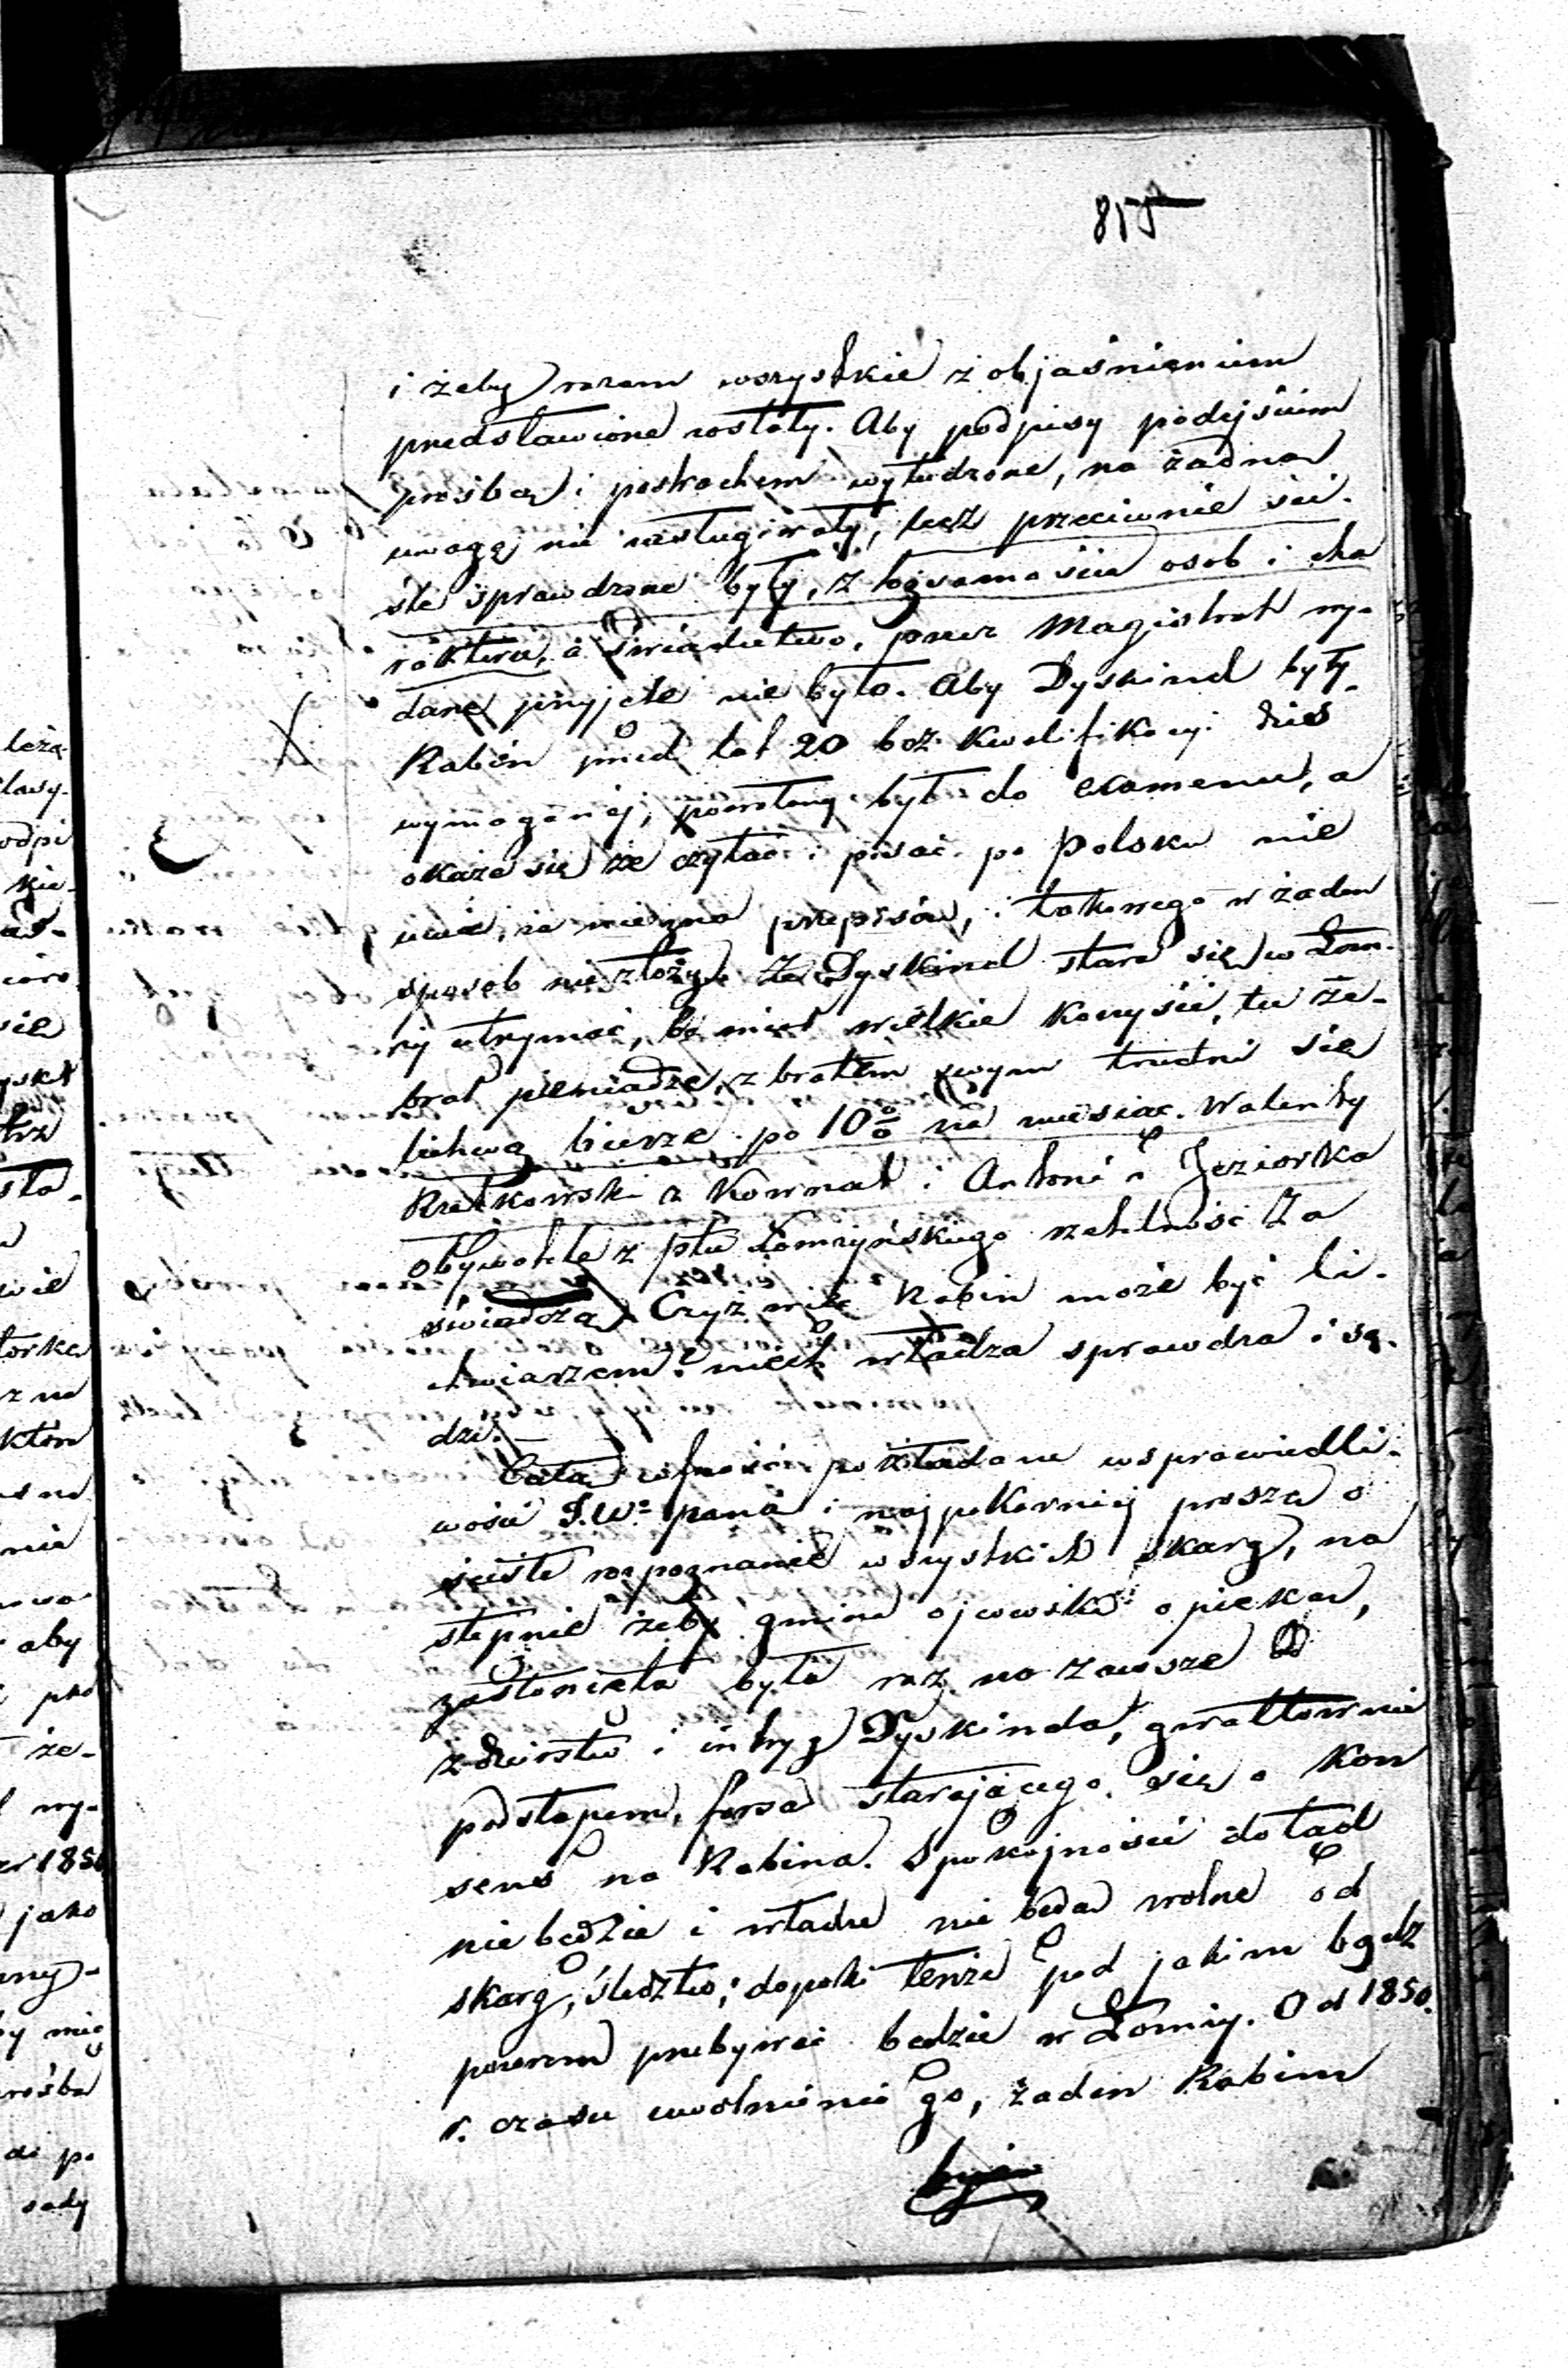 855
i żeby razem wszystkie z objaśnieniem
przedstawione zostały. Aby podpisy podejściem
prośbą i postrachem wyłudzone, na żadną
uwagę nie zasługiwały, lecz przeciwnie ści-
śle sprawdzone były, z tożsamością osob i cha
rakteru, a świadectwo, przez Magistrat wy-
dane przyjęte nie było. Aby Dyskind były
Rabin przed lat 20 bez kwalifikacyi dziś
wymaganéj, powołany był do examenu, a
okaże się że czytać i pisać po Polsku nie
umie, że nie zna przepisów, i takowego w żaden
sposob nie złoży. Że Dyskind stara się w Łom-
ży utrzymać, bo miał wielkie korzyście, tu ze-
brał pieniądze, z bratem swym trudni się
lichwą bierze po 10% na miesiąc. Walenty
z Kownat i Antoni z Jeziorka
obywatele z ptu Łomżyńskiego rzetelność za
świadczą. Czyż więc Rabin może być li-
chwiarzem? niech władza sprawdza i są-
dzi. —
Całą ufność pokładane w sprawiedli-
wości J.W. pana i najpokorniéj proszą o
ściśle rozpoznanie wszystkich skarg, na
stępnie żeby gmina ojcowską opieką,
zasłonięta była raz na zawsze od
zdzierstw i intryg Dyskinda, gwałtownie
podstępem, forsą starającego się o kon
sens na Rabina. Spokojności dotąd
nie będzie i władze nie będą wolne od
skarg, śledztw, dopoki tenże pod jakim bądź
pozorem przebywać będzie w Łomży. Od 1850.
r. czasu uwolnienia go, żaden Rabin